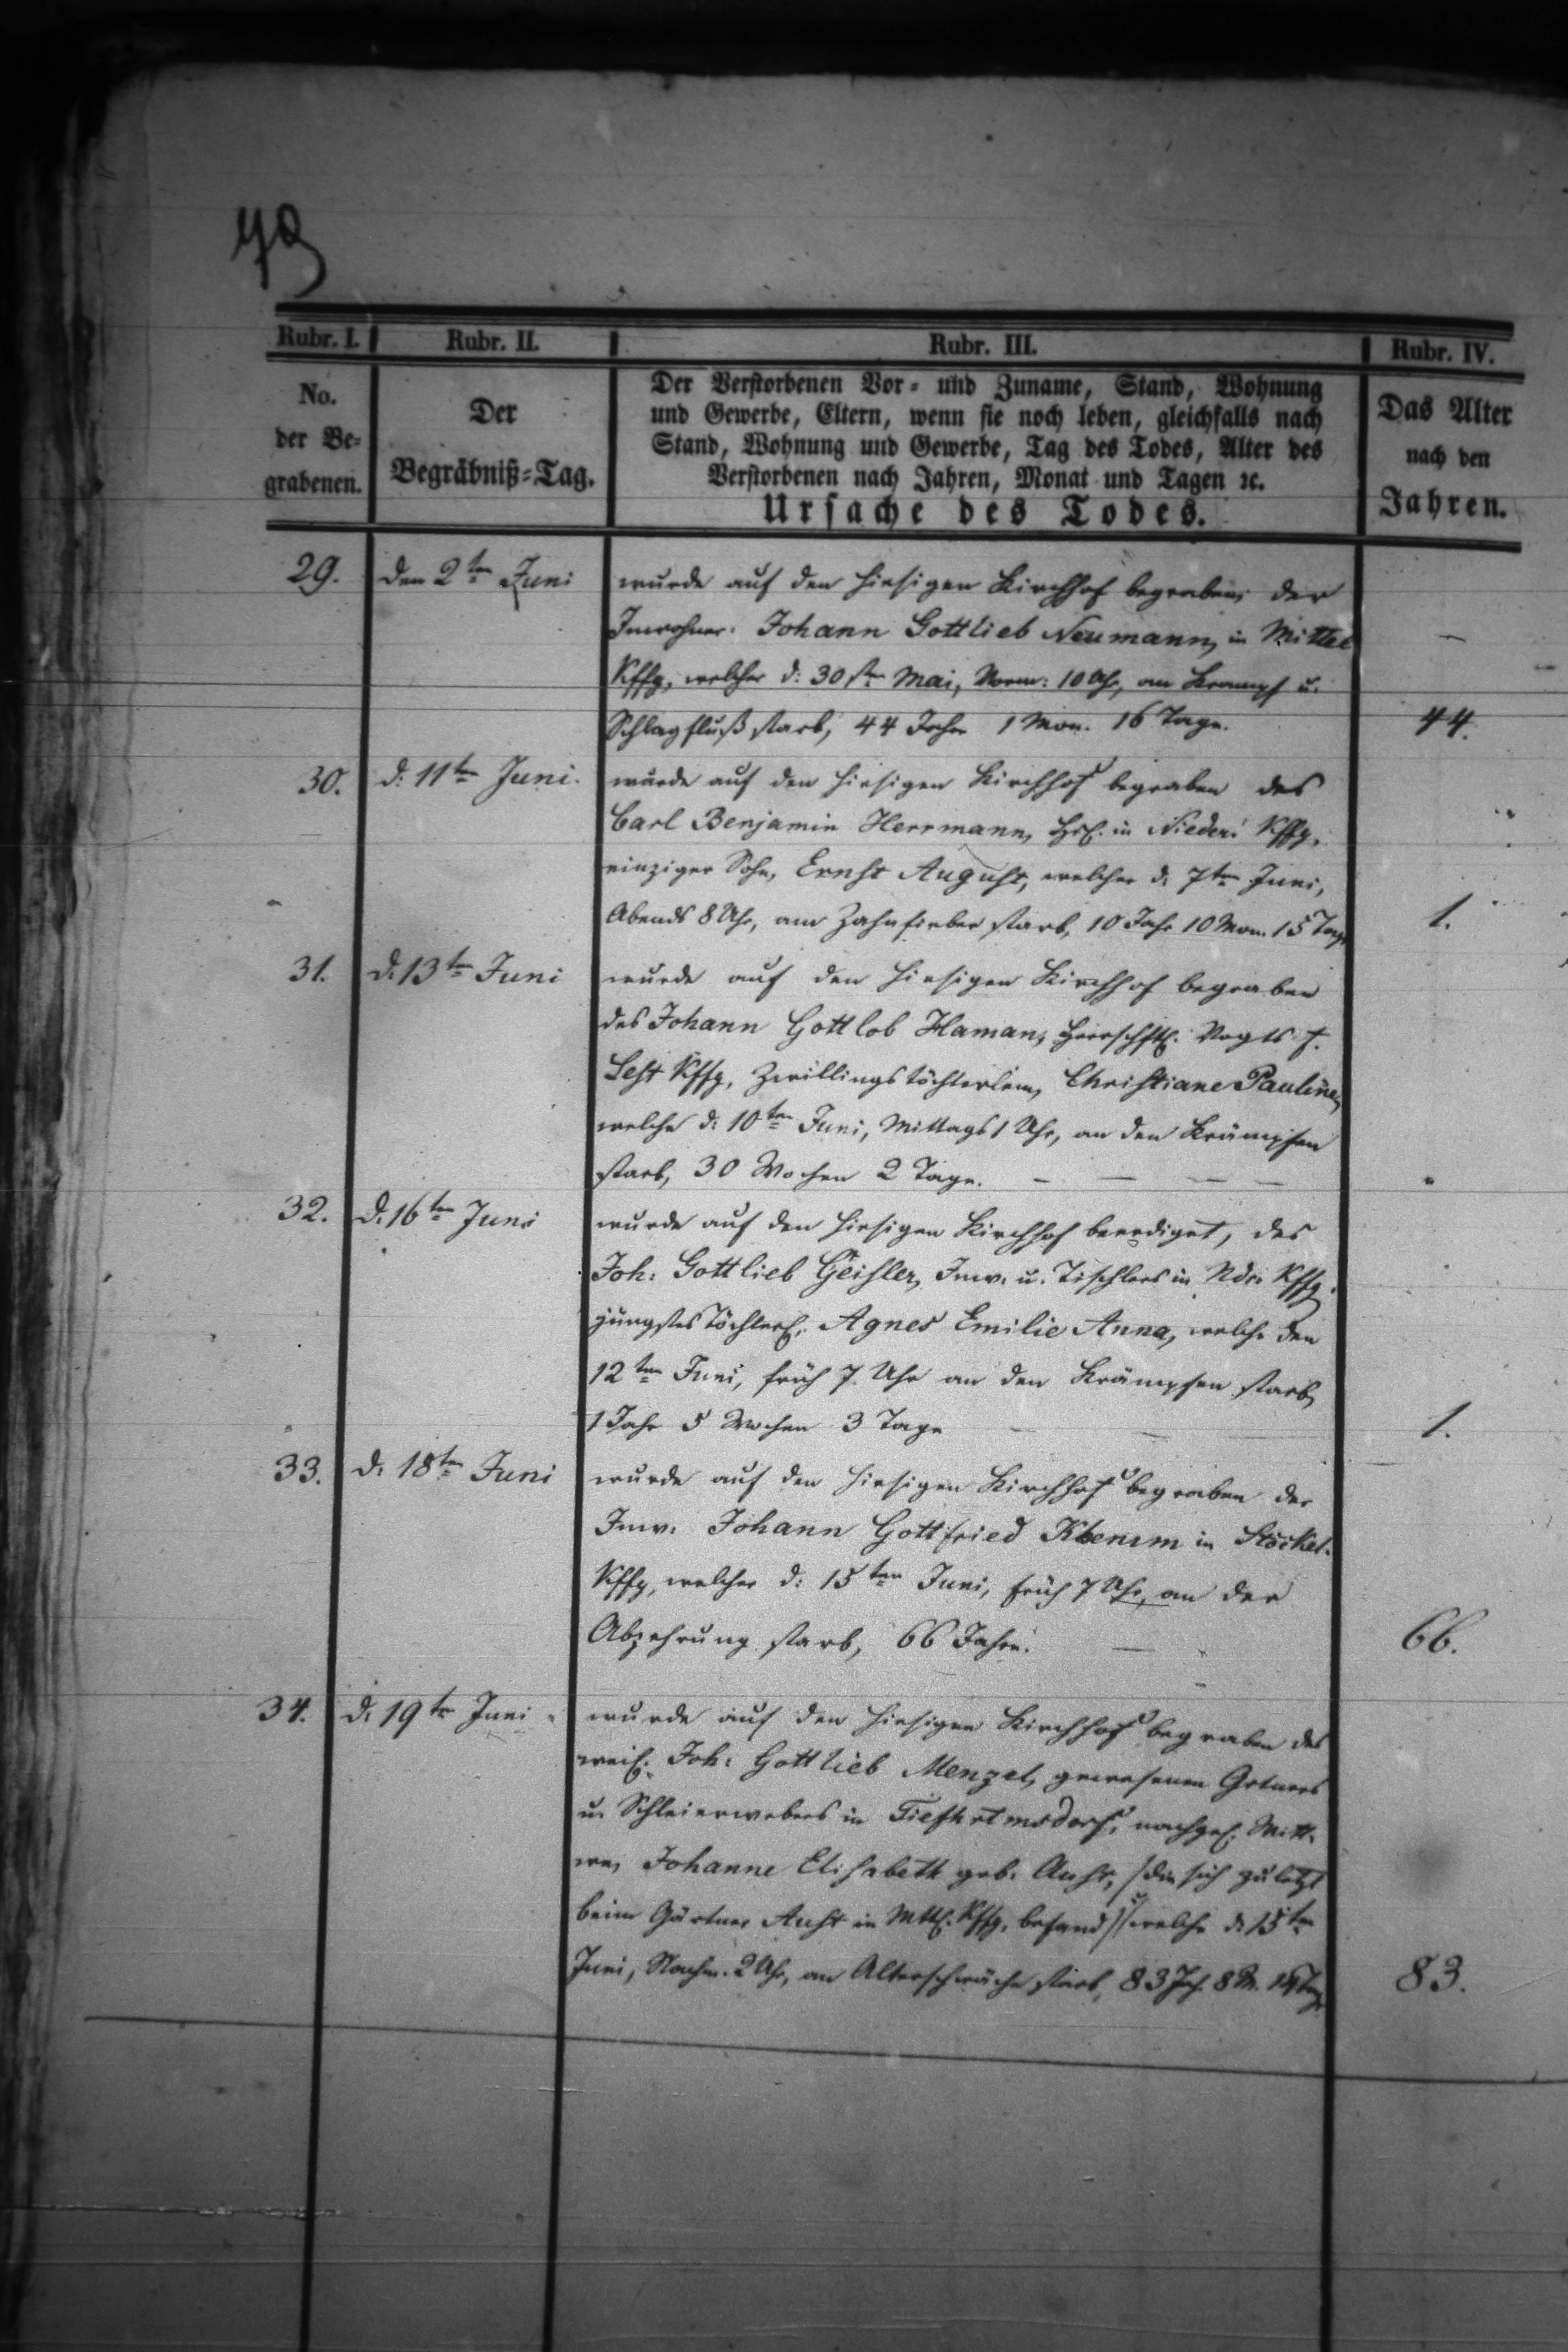 79
Rubr. I. Rubr. II. Rubr. III. Rubr. IV.
No.
der Be-
grabenen.
Der
Begräbniß-Tag.
Der Verstorbenen Vor- und Zuname, Stand, Wohnung
und Gewerbe, Eltern, wenn sie noch leben, gleichfalls nach
Stand, Wohnung und Gewerbe, Tag des Todes, Alter des
Verstorbenen nach Jahren, Monat und Tagen ꝛc.
Ursache des Todes.
Das Alter
nach den
Jahren.
29. Den 2ten Juni wurde auf den hiesigen Kirchhof begraben, der
Inwohner: Johann Gottlieb Neumann, in Mittel
Kffg, welcher d: 30sten Mai, Vorm: 10 Uhr, am Krampf u.
Schlagfluß starb, 44 Jahr 1 Mon. 16 Tage. 44.
30. d: 11ten Juni. wurde auf den hiesigen Kirchhof begraben des
Carl Benjamin Herrmann, in Nieder: Kffg,
einziger Sohn, Ernst August, welcher d. 7ten Juni,
Abends 8 Uhr, am Zahnfieber starb, 10 Jahr 10 Mon. 15 Tage 1.
31. d. 13ten Juni wurde auf den hiesigen Kirchhof begraben
des Johann Gottlob Haman, herrschftl. Vogts z.
Kffg, Zwillingstöchterlein, Christiane Pauline,
welche d: 10ten Juni, Mittags 1 Uhr, an den Krämpfen
starb, 30 Wochen 2 Tage. — — — —
32. d. 16ten Juni wurde auf den hiesigen Kirchhof beerdiget, des
Joh: Gottlieb Geisler, Inw. u. Tischlers in Ndr: Kffg.
jüngstes Töchterl. Agnes Emilie Anna, welche den
12ten Juni, früh 7 Uhr an den Krämpfen starb,
1 Jahr 5 Wochen 3 Tage 1.
33. d. 18ten Juni wurde auf den hiesigen Kirchhof begraben der
Inw. Johann Gottfried in Stöckel-
Kffg, welcher d: 15ten Juni, früh 7 Uhr, an der
Abzehrung starb, 66 Jahre. — 66.
34. d. 19ten Juni wurde auf den hiesigen Kirchhof begraben des
weil. Joh: Gottlieb Menzel, gewesenen Grtners
u. Schleierwebers in Tiefhrtmsdorf, nachgel. Witt-
we, Johanne Elisabeth geb. Aust, /die sich zuletzt
beim Gärtner Aust in Mttl. Kffg, befand/ welche d. 15ten
Juni, Nachm. 2 Uhr, an Altersschwäche starb, 83 Jh. 8 M. 83.